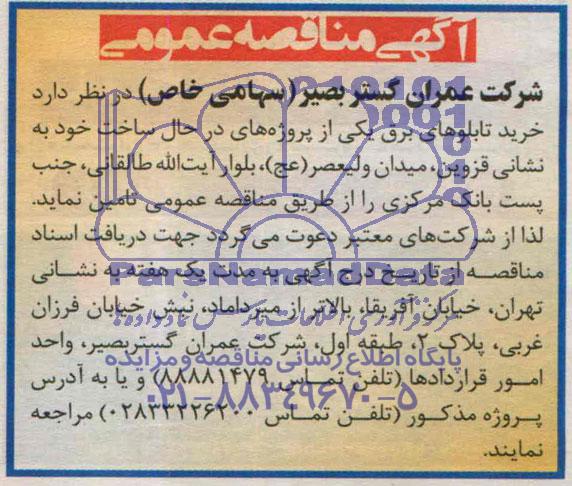 آگهی مناقصه عمومی
شرکت عمران گستر بصیر (سهامی خاص) در نظر دارد
خرید تابلوهای برق یکی از پروژه‌های در حال ساخت خود به
نشانی قزوین، میدان ولیعصر(عج)، بلوار آیت‌الله طالقانی، جنب
پست بانک مرکزی را از طریق مناقصه عمومی تامین نماید.
لذا از شرکت‌های معتبر دعوت می‌گردد جهت دریافت اسناد
مناقصه از تاریخ درج آگهی به مدت یک هفته به نشانی
ParsNamadData
تهران، خیابان آفریقا، بالاتر از میرداماد، نبش خیابان فرزان
غربی، پلاک ۲، طبقه اول، شرکت عمران گستر بصیر، واحد
پایگاه اطلاع رسانی مناقصه و مزایده
امور قراردادها (تلفن تماس ۸۸۸۸۱۴۷۹) و یا به آدرس
۰۲۱-۸۸۳۴۹۶۷۰-۵
پروژه مذکور (تلفن تماس ۰۲۸۳۳۲۲۶۲۰۰) مراجعه
نمایند.